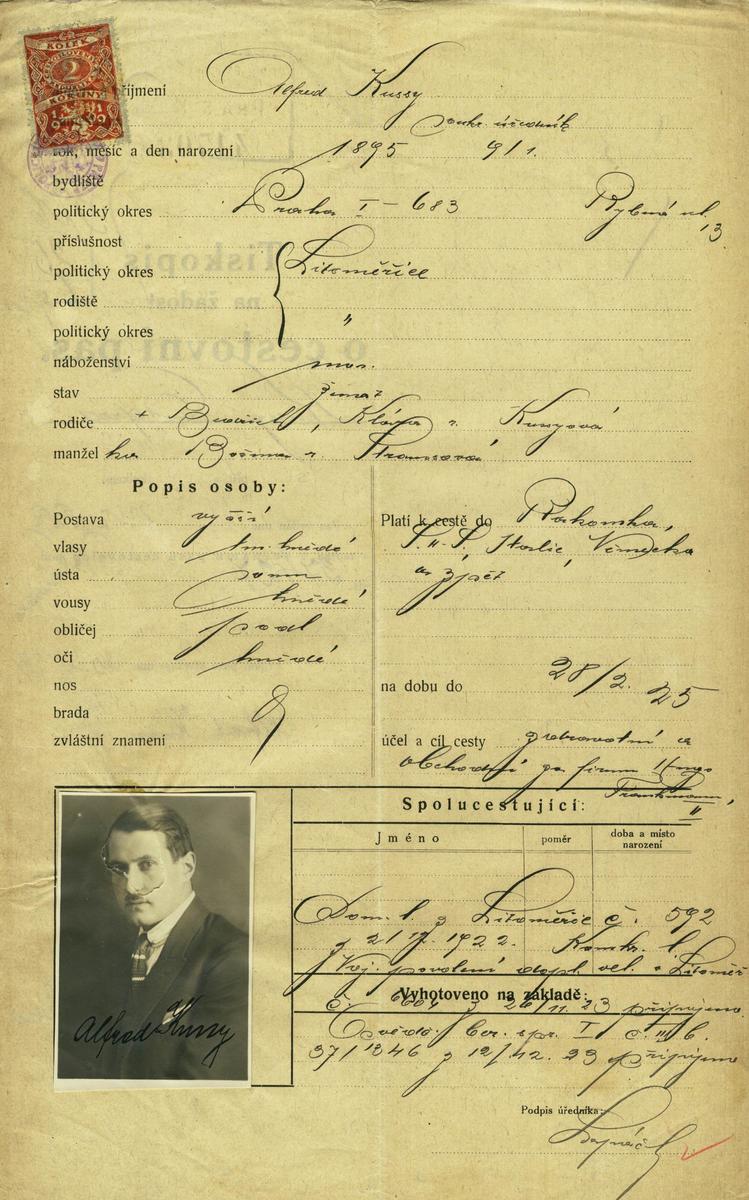 KOLEK
2
KORUNY
příjmení Alfred Kussy
soukr. úředník
rok, měsíc a den narození 1895 9/1.
bydliště
politický okres Praha I – 683 Rybná ul. 13
příslušnost
politický okres Litoměřice
rodiště
politický okres "
náboženství mos.
stav ženat
rodiče + Bedřich, Klára r. Kussyová
manžel ka r.
Popis osoby:
Postava vyšší
vlasy tm. hnědé
ústa
vousy hnědé
obličej podl
oči hnědé
nos
brada
zvláštní znamení
Platí k cestě do Rakouska,
Italie, Německa
a zpět
na dobu do 28/2. 25
účel a cíl cesty zdravotní a
obchodní za firmu Hugo
Spolucestující:
Jméno
poměr
doba a místo narození
Dom. l. z Litoměřic č. 592
z 1922.
Voj. povolení dopl. vel. v Litoměř
Vyhotoveno na základě:
č. z 26/11. 23 připojeno.
I č.
37/1346 z 12/12. 23 připojeno
Alfred Kussy
Podpis úředníka: